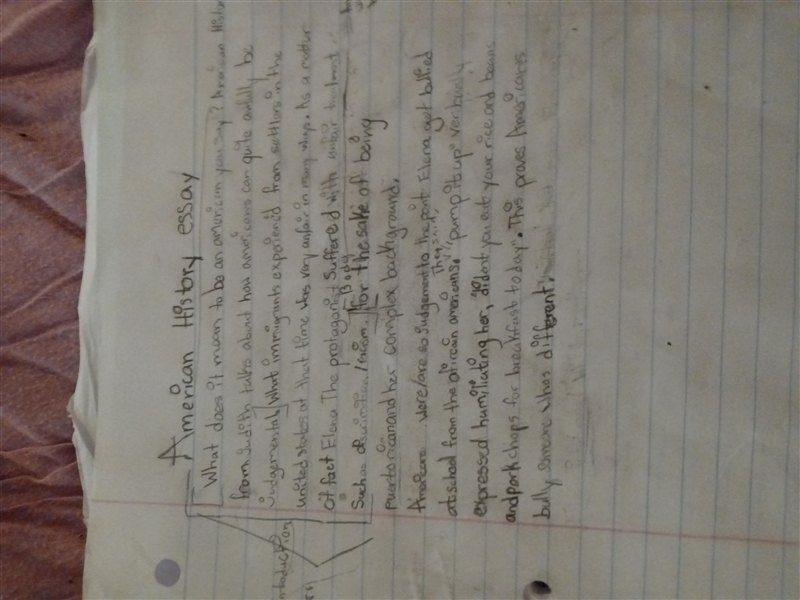 American History essay
What does it mean to be an american you say? American Histor
from Judith talks about how americans can quite awfully be
Judgemental. What immigrants expeienced from settlers in the
united states at that time was very unfair in many ways. As a matter
of fact Elena The protagonist Suffered with unfair
Such as /racism. for the sake of being
Body
puertorican and her complex background.
Americans were/are so judgement to the point Elena got bullied
at school from the african americans. They said, "pump it up" verbally
expressed humiliating her, "didnt you eat your rice and beans
and pork chops for breakfast today". This proves Americans
bully someone whos different.
introduction